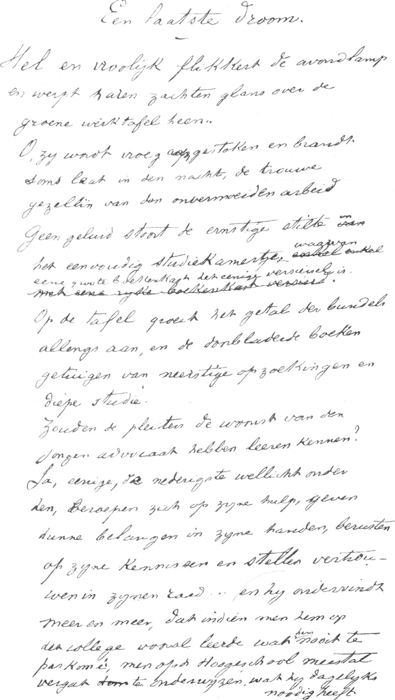 Een laatste droom.
Hel en vroolijk flikkert de avondlamp
en werpt haren zachten glans over de
groene werktafel heen.
O, zy wordt vroeg opgestoken en brandt
soms laat in den nacht, de trouwe
gezellin van den onvermoeiden arbeid
Geen geluid stoort de ernstige stilte in
het eenvoudig studiekamertje, waarvan
eene zwarte boekenkast het eenige versiersel is.
met eene ryke boekenkast versierd.
Op de tafel groeit het getal der bundels
allengs aan, en de doorbladerde boeken
getuigen van neerstige opzoekingen en
diepe studie.
Zouden de pleiters de woonst van den
jongen advocaat hebben leeren kennen?
Ja, eenige, de nederigste wellicht onder
hen, beroepen zich op zyne hulp, geven
hunne belangen in zyne handen, berusten
op zyne kennissen en stellen vertrou-
wen in zynen raad... en hy ondervindt
meer en meer, dat indien men hem op
het college vooral leerde wat hem nooit te
pas komt, men op de Hoogeschool meestal
vergat te onderwyzen, wat hy dagelyks
noodig heeft